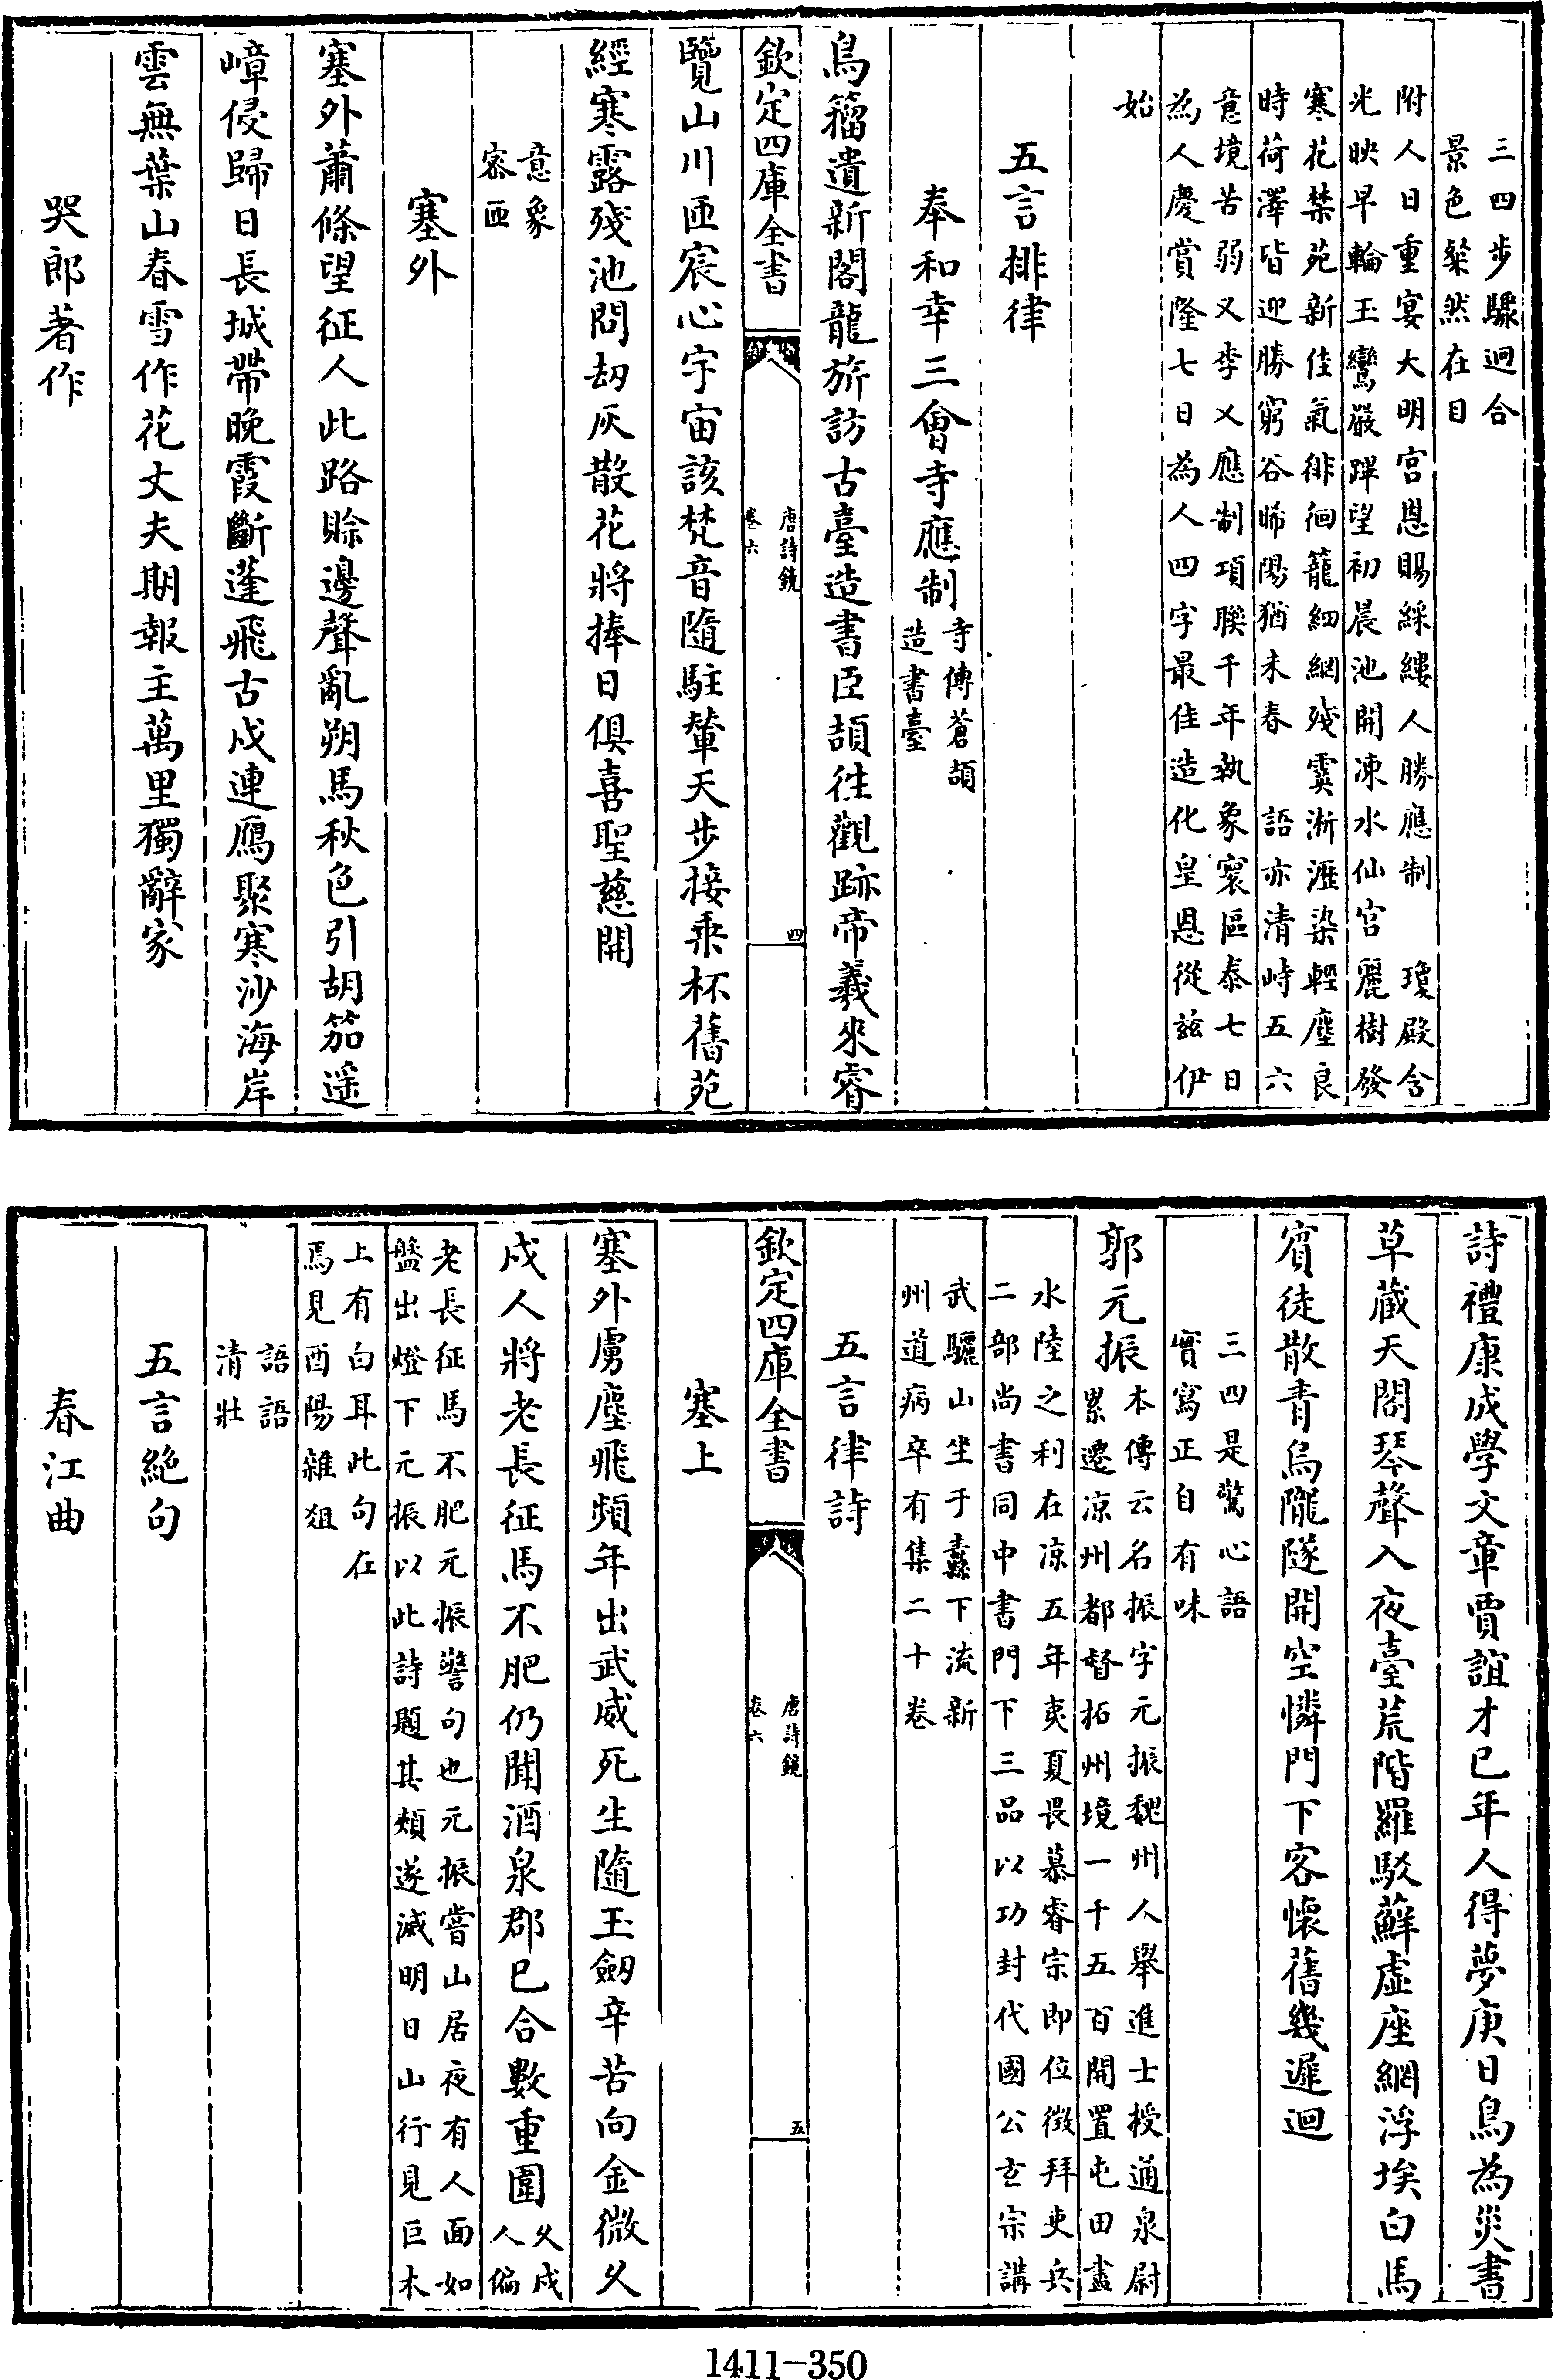 三四步驟迥合
景色粲然在目
附人日重宴大明宮恩賜綵縷人勝應制　瓊殿含
光映早輪玉鸞嚴蹕望初晨池開凍水仙宮麗樹發
寒花禁苑新佳氣徘徊籠細網殘霙淅瀝染輕塵良
時荷澤皆迎勝窮谷晞陽猶未春　語亦清峙五六
意境苦弱又李乂應制項聯千年執象寰區泰七日
為人慶賞隆七日為人四字最佳造化皇恩從兹伊
始
五言排律
奉和幸三會寺應制寺傳蒼頡
造書臺
鳥籀遺新閣龍旂訪古臺造書臣頡往觀跡帝羲來睿
欽定四庫全書
唐詩鏡
卷六
四
覽山川匝宸心宇宙該梵音隨駐輦天步接乘杯舊苑
經寒露殘池問刼灰散花將捧日俱喜聖慈開
意象
密匝
塞外
塞外蕭條望征人此路賒邊聲亂朔馬秋色引胡笳遥
嶂侵歸日長城帶晚霞斷蓬飛古戍連鴈聚寒沙海岸
雲無葉山春雪作花丈夫期報主萬里獨辭家
哭郎著作
詩禮康成學文章賈誼才巳年人得夢庚日鳥為災書
草蔵天閣琴聲入夜臺荒階羅駁蘚虛座網浮埃白馬
賓徒散青烏隴隧開空憐門下客懷舊幾遲迴
三四是驚心語
實寫正自有味
郭元振本傳云名振字元振魏州人舉進士授通泉尉
累遷凉州都督拓州境一千五百開置屯田盡
水陸之利在凉五年夷夏畏慕睿宗即位徵拜吏兵
二部尚書同中書門下三品以功封代國公玄宗講
武驪山坐于纛下流新
州道病卒有集二十卷
五言律詩
欽定四庫全書
唐詩鏡
卷六
五
塞上
塞外虜塵飛頻年出武威死生隨玉劒辛苦向金微久
戍人將老長征馬不肥仍聞酒泉郡已合數重圍久戍
人偏
老長征馬不肥元振警句也元振嘗山居夜有人面如
盤出燈下元振以此詩題其頰遂滅明日山行見巨木
上有白耳此句在
焉見酉陽雜俎
語語
清壯
五言絶句
春江曲
1411-350